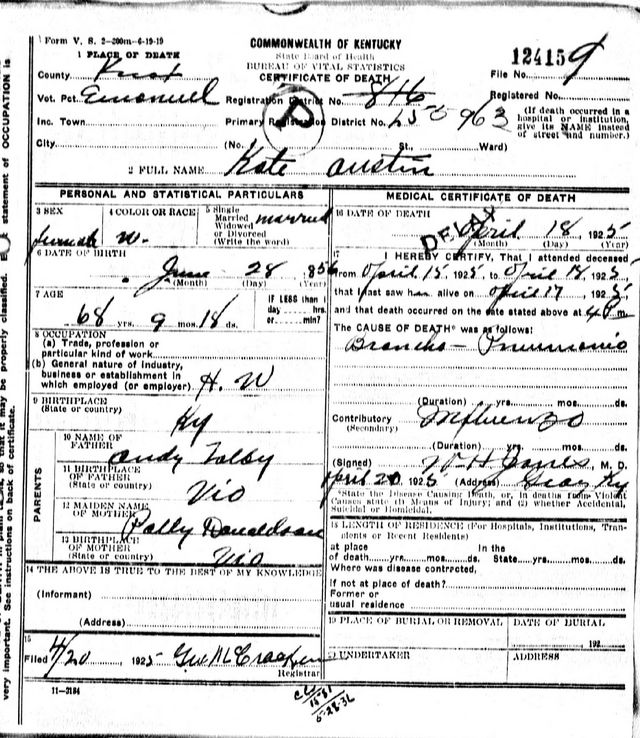 Form V. S. 2-200m-6-19-19
1 PLACE OF DEATH
COMMONWEALTH OF KENTUCKY
State Board of Health
BUREAU OF VITAL STATISTICS
CERTIFICATE OF DEATH
File No. 12415
County Knox
Vot. Pct. Emanuel
Registration District No. 816
Registered No.
Inc. Town
Primary Registration District No.
963
(If death occurred in a hospital or institution, give its NAME instead of street and number.)
City
(No.
St., Ward)
2 FULL NAME Kate Austin
PERSONAL AND STATISTICAL PARTICULARS
3 SEX female
4 COLOR OR RACE W.
5 Single
Married married
Widowed
or Divorced
(Write the word)
6 DATE OF BIRTH
June 28 856
(Month) (Day) (Year)
7 AGE
68 yrs. 9 mos. 18 ds.
IF LESS than 1 day hrs. or min?
8 OCCUPATION
(a) Trade, profession or
particular kind of work
(b) General nature of industry,
business or establishment in
which employed (or employer) H. W
9 BIRTHPLACE
(State or country)
Ky
PARENTS
10 NAME OF
FATHER
Andy
11 BIRTHPLACE
OF FATHER
(State or country)
Via
12 MAIDEN NAME
OF MOTHER
Polly Donaldson
13 BIRTHPLACE
OF MOTHER
(State or country)
Via
14 THE ABOVE IS TRUE TO THE BEST OF MY KNOWLEDGE
(Informant)
(Address)
15
Filed 4/20 1925 Geo McCracken
Registrar
11-3184
5-28-36
MEDICAL CERTIFICATE OF DEATH
16 DATE OF DEATH
DELAY
April 18 1925
(Month) (Day) (Year)
17 I HEREBY CERTIFY, That I attended deceased
from April 15 1925, to April 18 1925,
that I last saw h alive on April 17 192
and that death occurred on the date stated above at m
The CAUSE OF DEATH* was as follows:
Broncho-Pneumonia
(Duration) yrs. mos. ds.
Contributory Influenza
(Secondary)
(Duration) yrs. mos. ds.
(Signed) W H Jones, M. D.
April 20 1925 (Address) Ky
*State the Disease Causing Death, or, in deaths from Violent
Causes state (1) Means of Injury; and (2) whether Accidental,
Suicidal or Homicidal.
18 LENGTH OF RESIDENCE (For Hospitals, Institutions, Transients or Recent Residents)
at place of death yrs. mos. ds. In the State yrs. mos. ds.
Where was disease contracted,
if not at place of death?
Former or
usual residence
19 PLACE OF BURIAL OR REMOVAL
DATE OF BURIAL
192
UNDERTAKER
ADDRESS
very important. See instructions on back of certificate.
so that it may be properly classified.
statement of OCCUPATION is